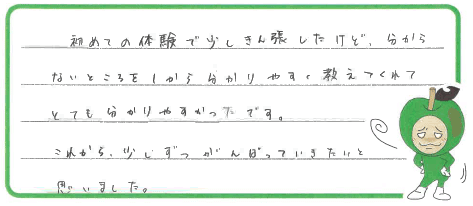 初めての体験で少しきん張したけど、分から
ないところを1から分かりやすく教えてくれて
とても分かりやすかったです。
これから、少しずつがんばっていきたいと
思いました。